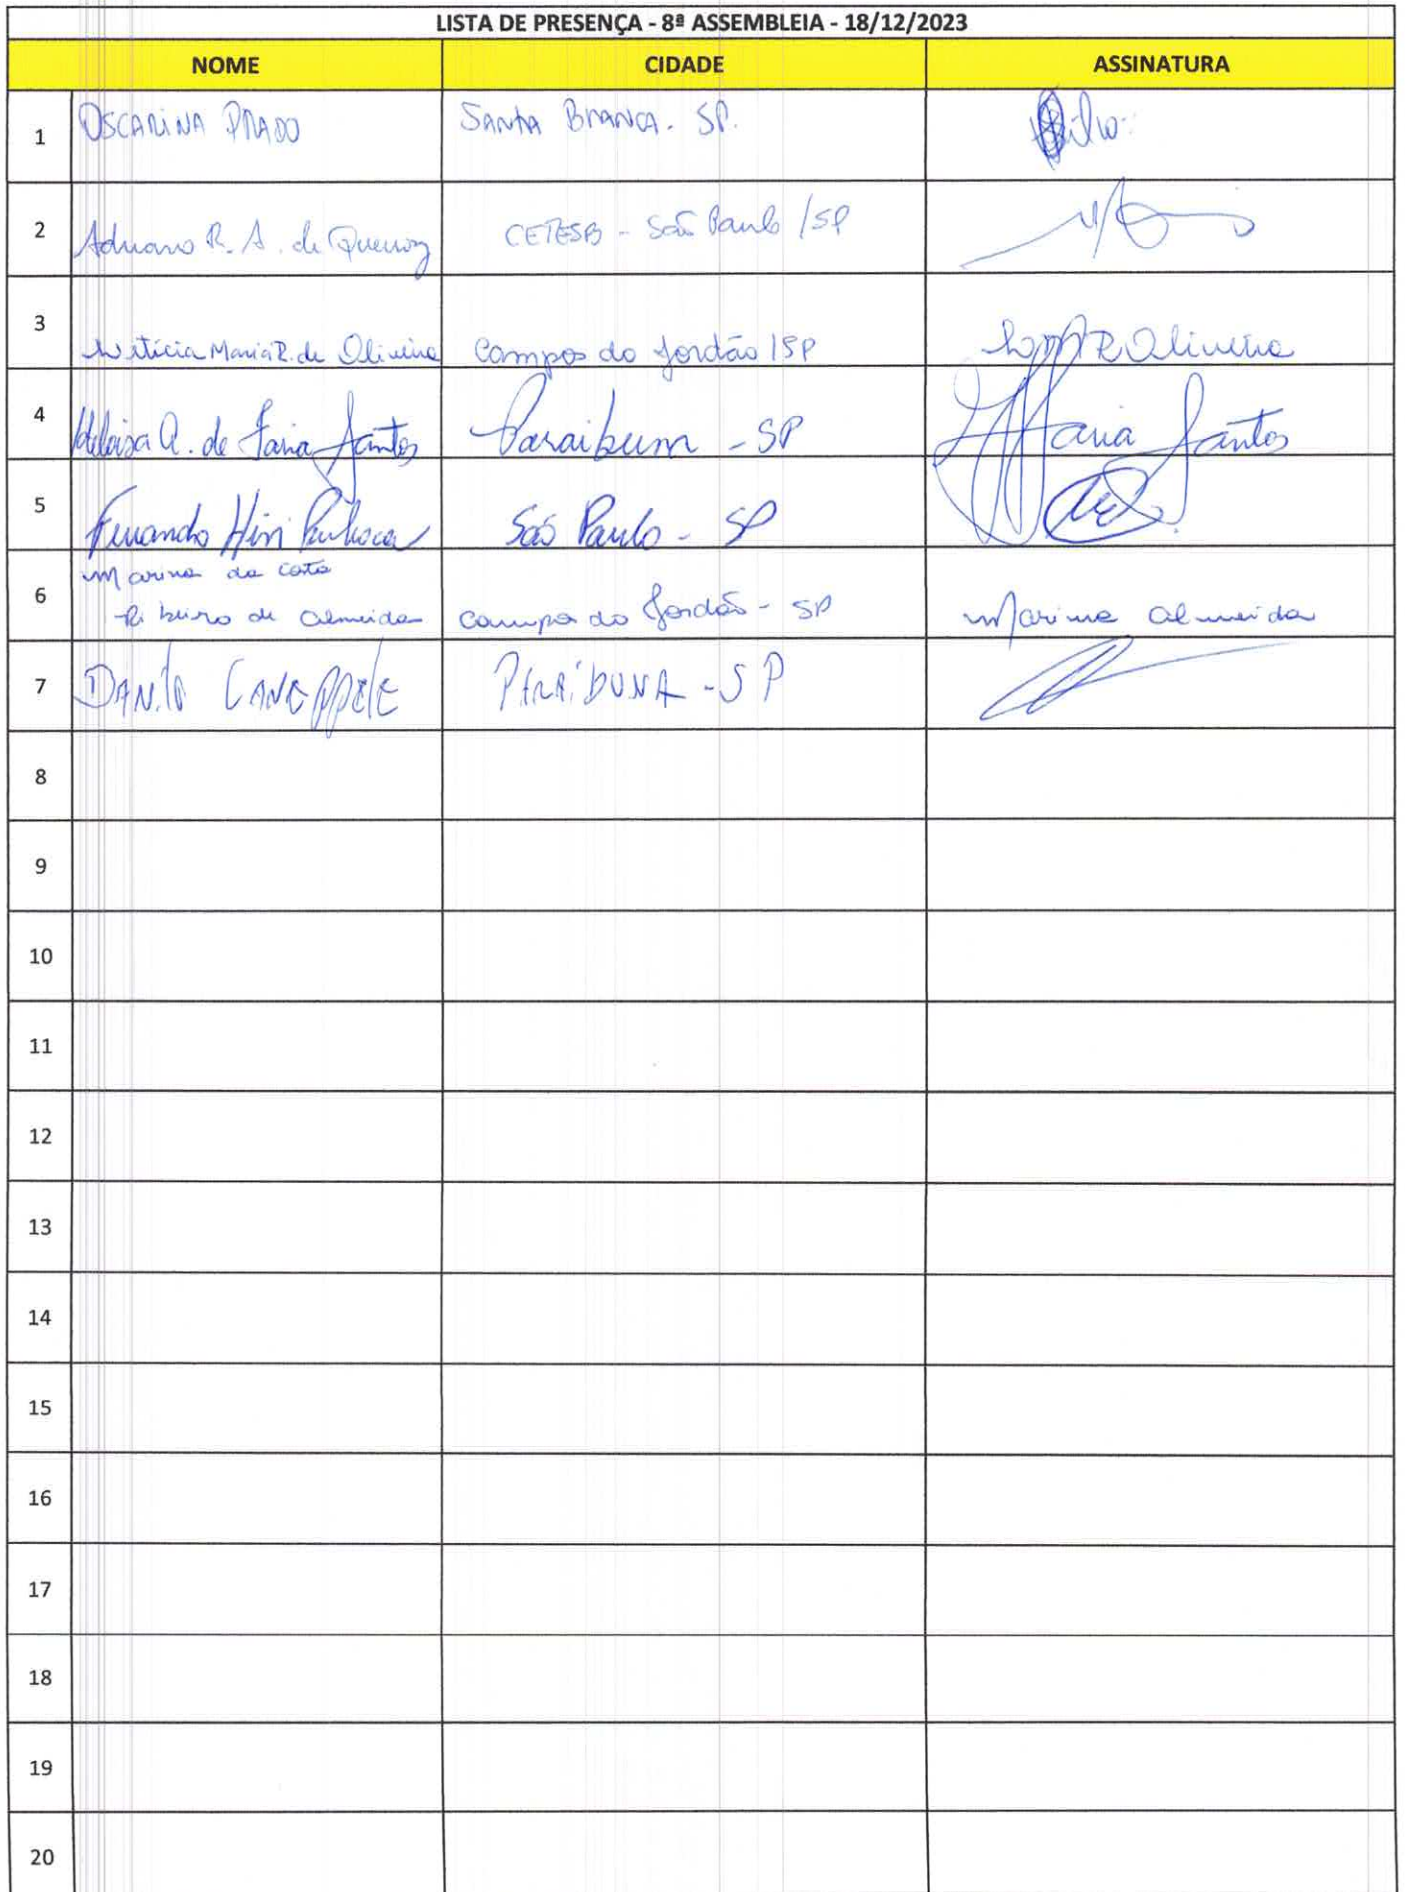 LISTA DE PRESENÇA - 8ª ASSEMBLEIA - 18/12/2023
NOME CIDADE ASSINATURA
1 OSCARINA PRADO SANTA BRANCA - SP.
2 Adriano R. A. de Queiroz CETESB - São Paulo / SP
3 Letícia Maria R. de Oliveira Campos do Jordão / SP LMR Oliveira
4 Heloisa A. de Faria Santos Paraibuna - SP HFaria Santos
5 Fernando São Paulo - SP
Marina da Costa
6 Ribeiro de Almeida Campos do Jordão - SP Marina Almeida
7 DANILO CANEPPELE PARAIBUNA - SP
8
9
10
11
12
13
14
15
16
17
18
19
20